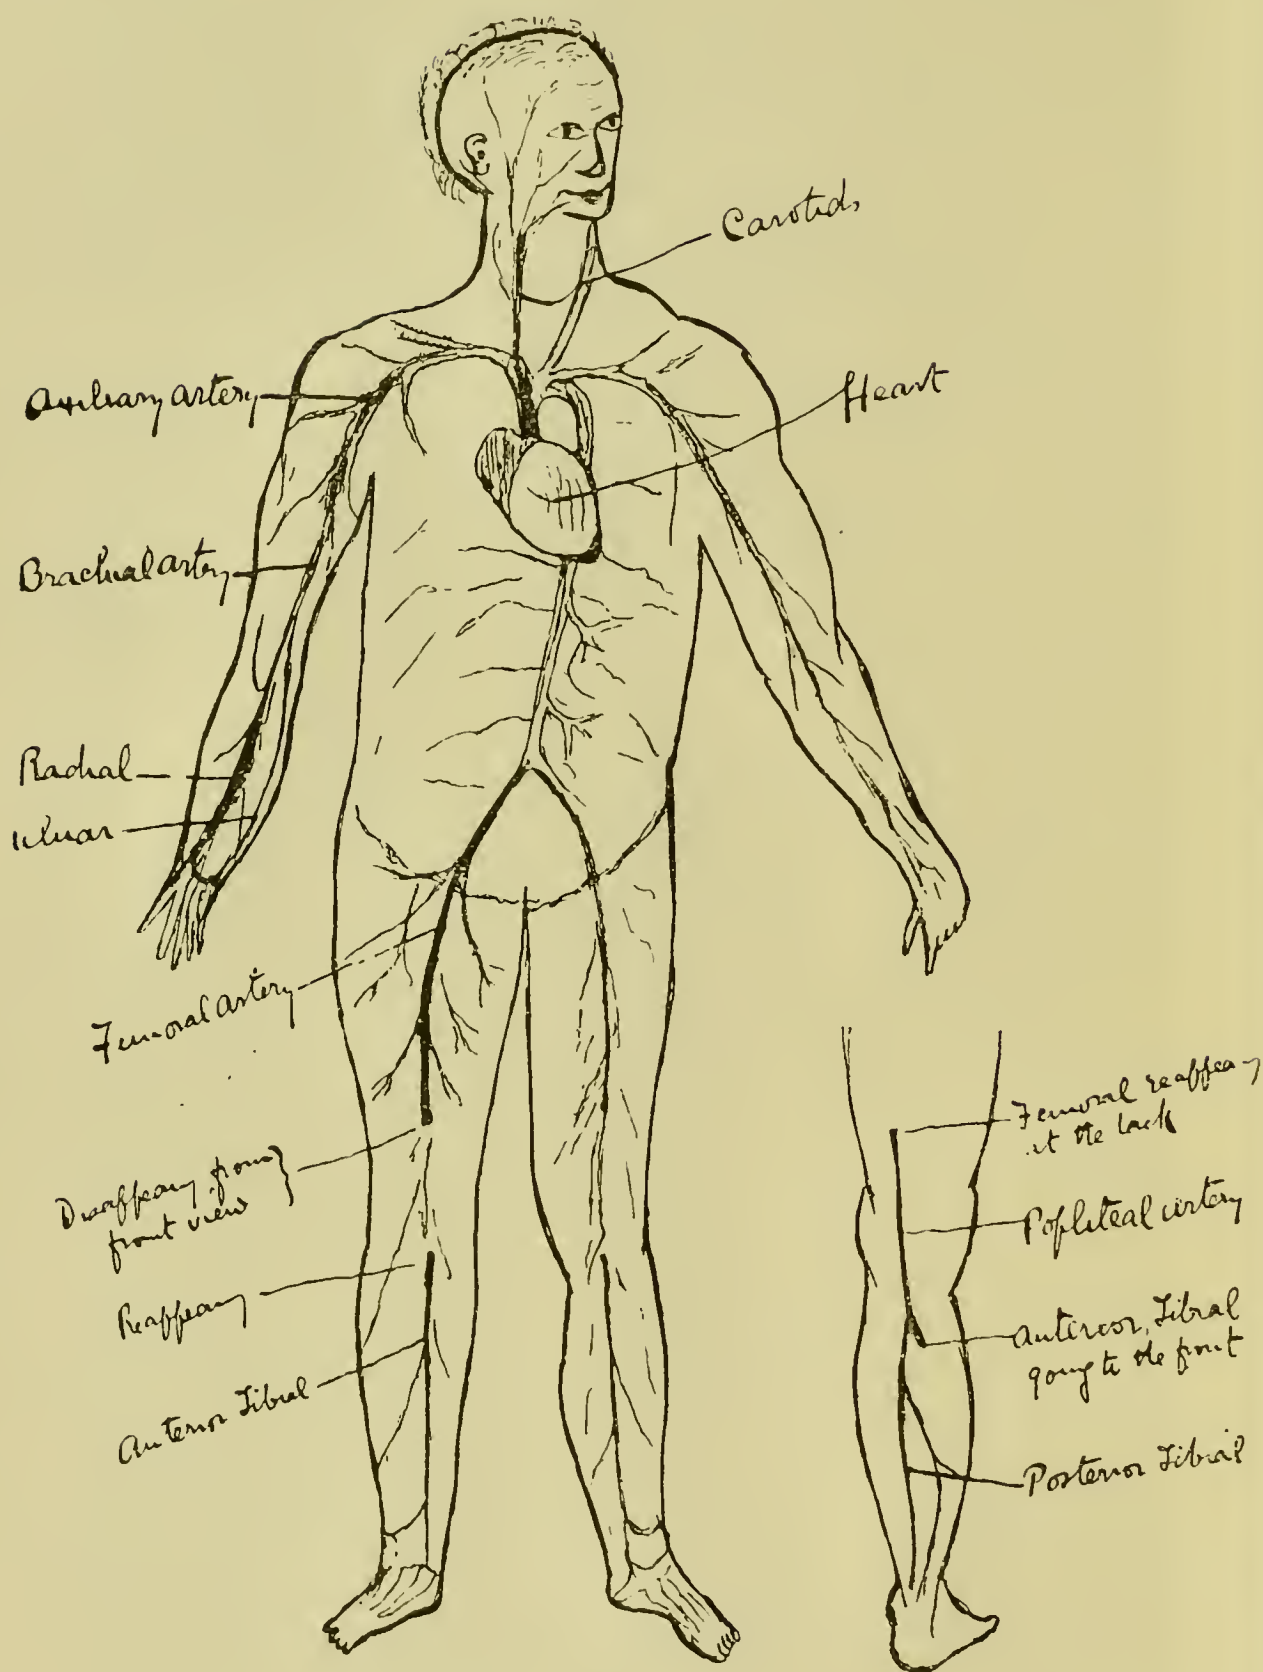 Carotids
Heart
Auxiliary artery
Brachial artery
Radial
ulnar
Femoral artery
Disappearing from
front view
Reappearing
Anterior Tibial
Femoral reappearing
at the back
Popliteal artery
Anterior Tibial
going to the front
Posterior Tibial